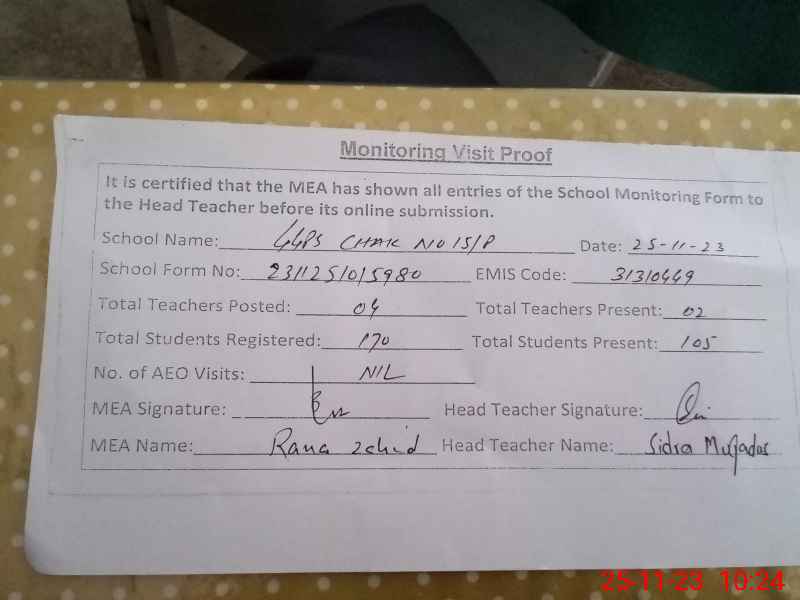 Monitoring Visit Proof
It is certified that the MEA has shown all entries of the School Monitoring Form to
the Head Teacher before its online submission.
School Name: GGPS CHAK NO 15/P Date: 25-11-23
School Form No: 231125/015980 EMIS Code: 31310449
Total Teachers Posted: 04 Total Teachers Present: 02
Total Students Registered: 170 Total Students Present: 105
No. of AEO Visits: NIL
MEA Signature: Head Teacher Signature:
MEA Name: Rana Head Teacher Name: Sidra
25-11-23 10:24